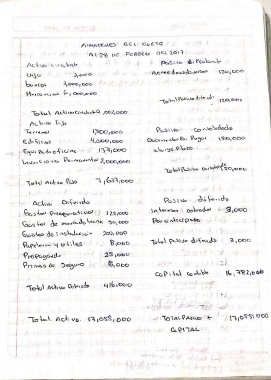 ALMACENES DEL NORTE
AL 28 DE FEBRERO DEL 2017
Activo circulante
Caja 2,000
bancos 7,000,000
Mercancias 2,000,000
Total Activo circulante 9,002,000
Activo Fijo
Terreno 1,500,000
Edificios 4,000,000
Equipo de oficina 137,000
Inversiones Permanentes 2,000,000
Total Activo fijo 7,637,000
Activo Diferido
Gastos Preoperativos 125,000
Gastos de mercadotecnia 50,000
Gastos de instalacion 200,000
Papeleria y utiles 8,000
Propaganda 25,000
Primas de Seguro 8,000
Total Activo Diferido 416,000
Total Activo. 17,055,000
Pasivo circulante
Acreedores diversos 120,000
120,000
Pasivo consolidado
Documentos Por Pagar 150,000
a largo Plazo
Total Pasivo consolidado 150,000
Pasivo diferido
Intereses cobrados 3,000
Por anticipado
Total Pasivo diferido 3,000
Capital contable 16,782,000
TOTAL PASIVO + 17,055,000
CAPITAL